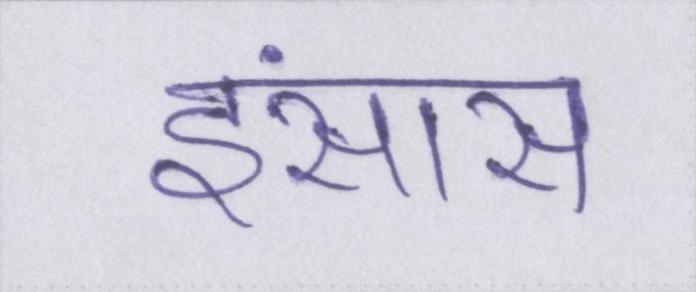 इंसास